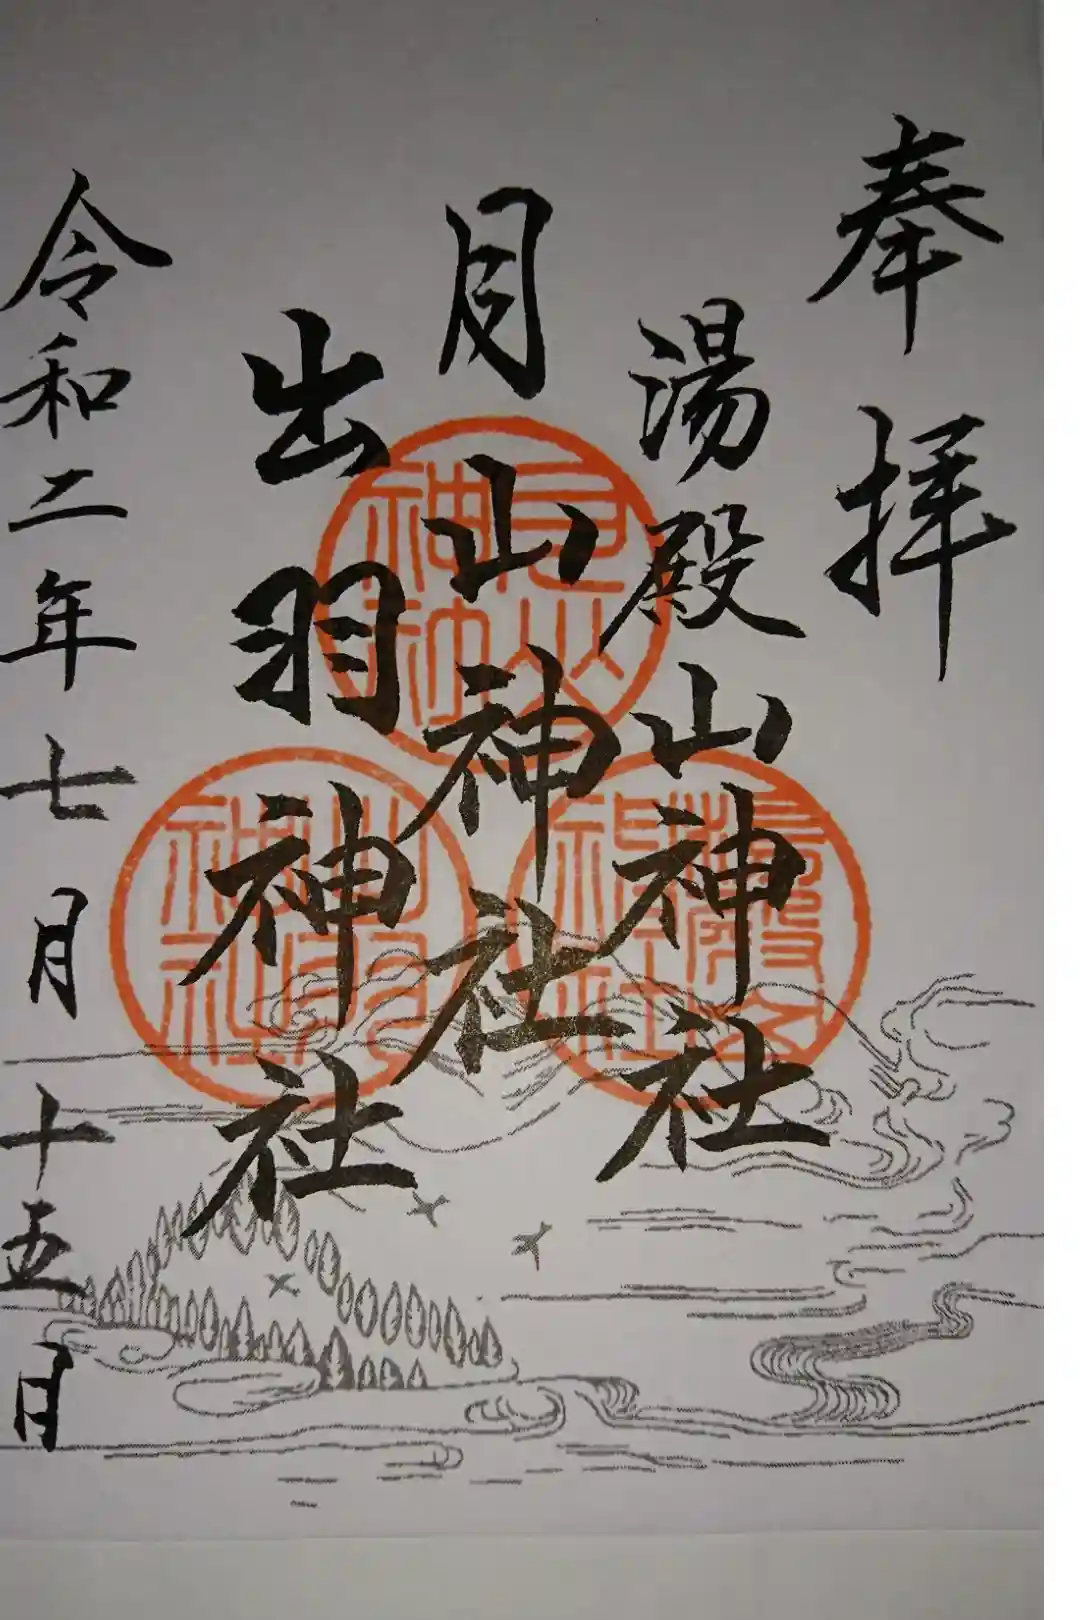 奉拝
湯殿山神社
月山神社
出羽神社
令和二年七月十五日